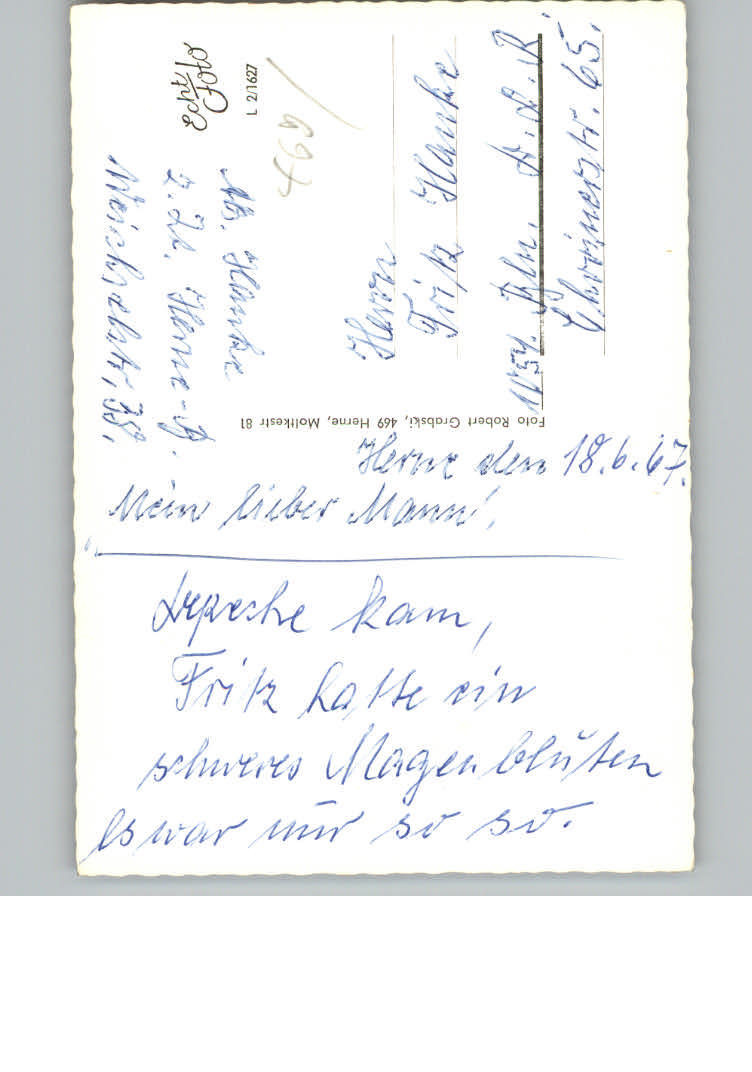 Echt
Foto
L 2/1627
697
Abs. Hanke
z. Zt. Herne-
Weichselstr, 38.
Herrn
Fritz Hanke
1034 Bln.
65.
Foto Robert Grabski, 469 Herne, Moltkestr 81
Herne den 18.6.67.
Mein lieber Mann!
Depesche kam,
Fritz hatte ein
schweres Magenbluten
Es war nur so so.